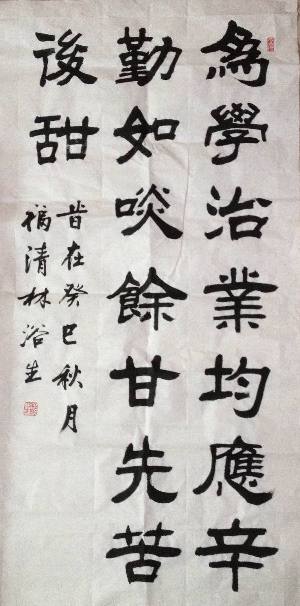 為學治業均應辛
勤如啖餘甘先苦
後甜
旹在癸巳秋月
福清林浴生